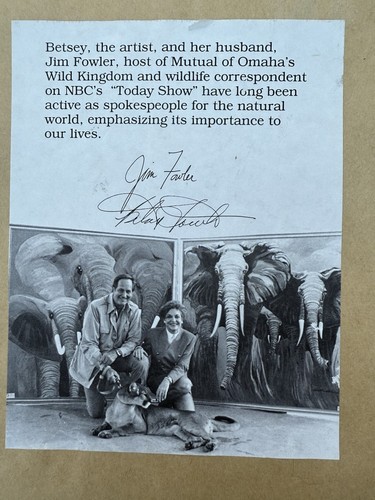 Betsey, the artist, and her husband,
Jim Fowler, host of Mutual of Omaha's
Wild Kingdom and wildlife correspondent
on NBC's "Today Show" have long been
active as spokespeople for the natural
world, emphasizing its importance to
our lives.
Jim Fowler